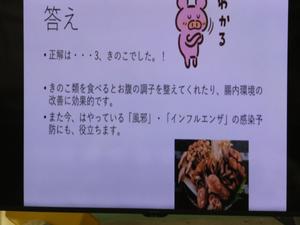 わかる
答え
・正解は・・・3、きのこでした。!
・きのこ類を食べるとお腹の調子を整えてくれたり、腸内環境の
改善に効果的です。
・また今、はやっている「風邪」・「インフルエンザ」の感染予
防にも、役立ちます。